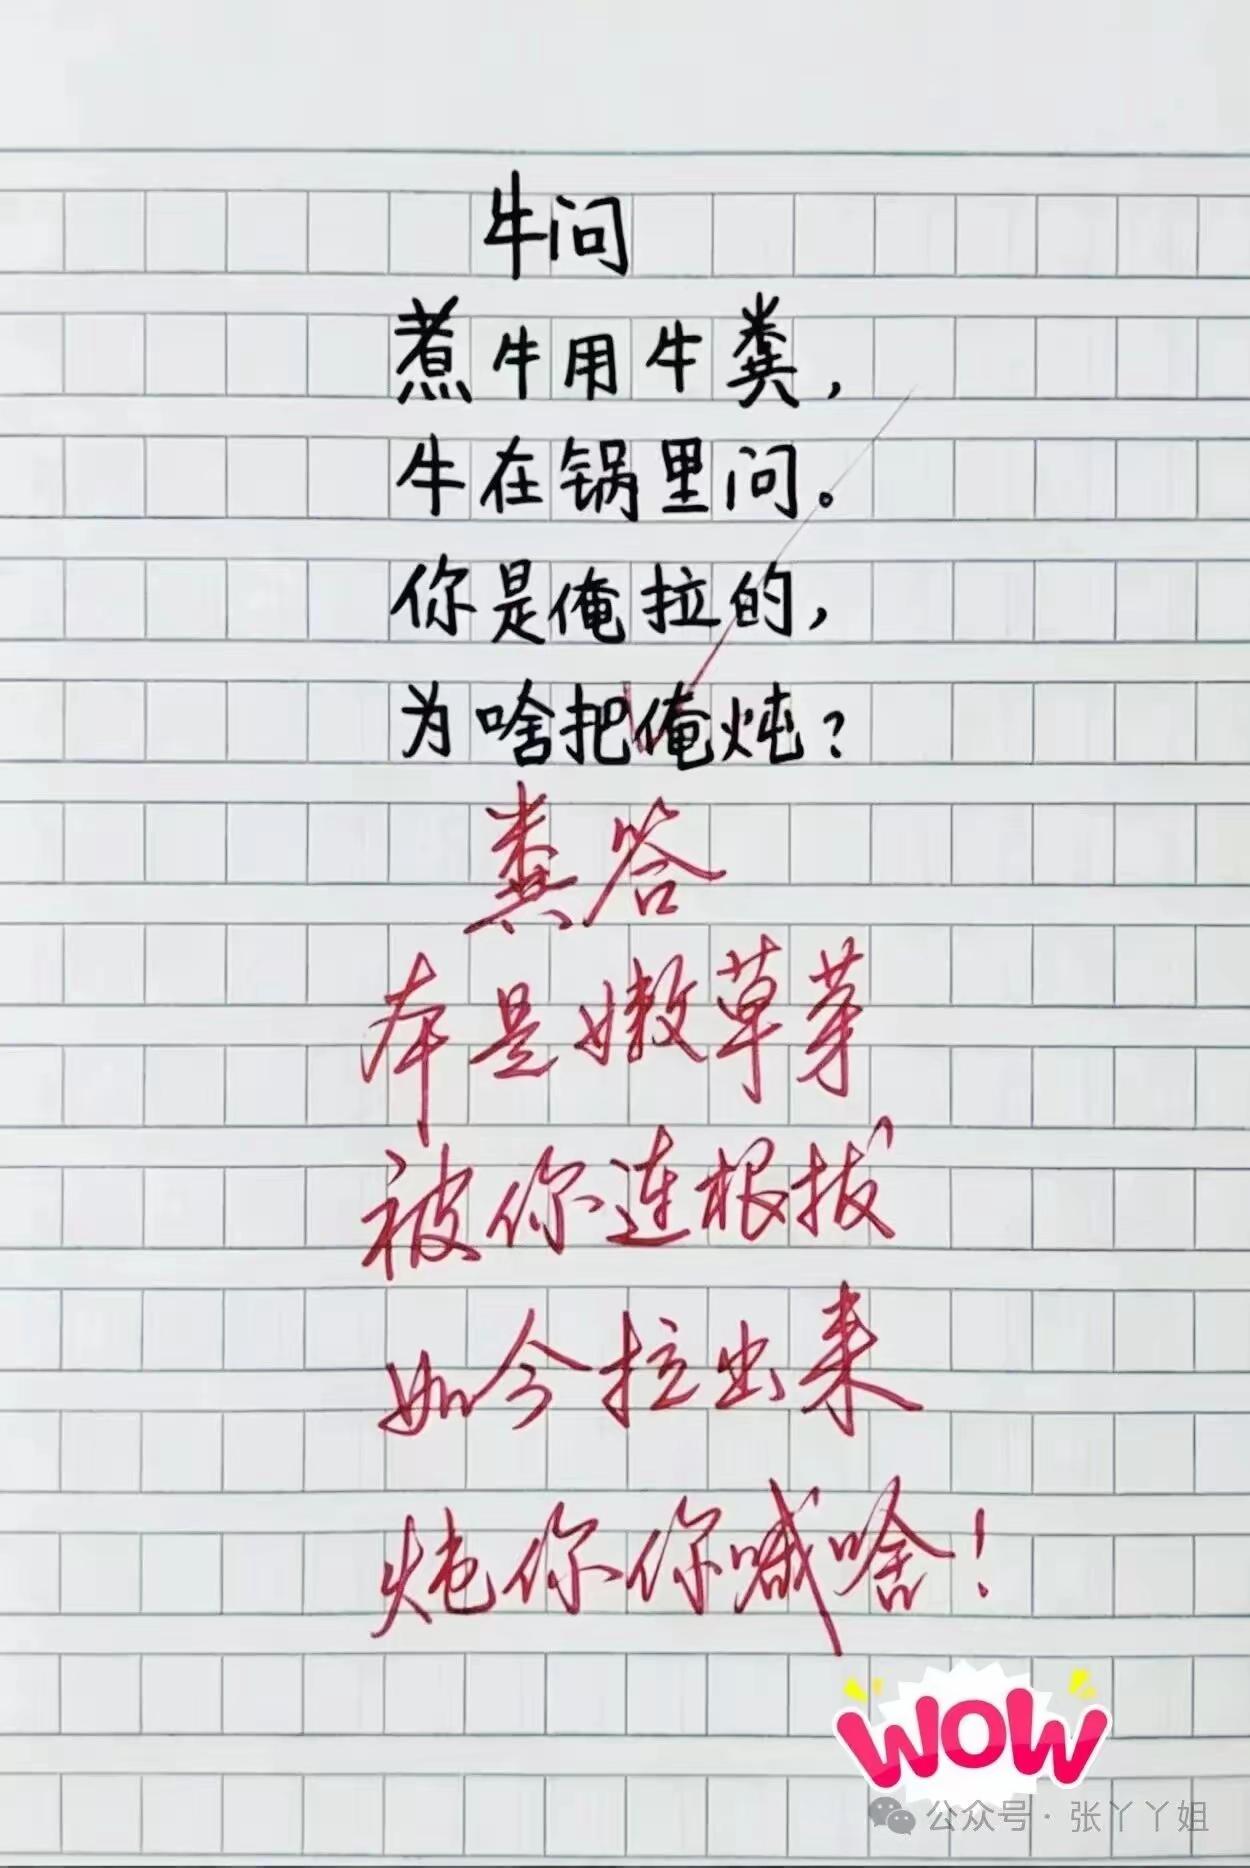 牛问
煮牛用牛粪，
牛在锅里问。
你是俺拉的，
为啥把俺炖？
粪答
本是嫩草芽
被你连根拔
如今拉出来
炖你你喊啥！
WOW
公众号·张丫丫姐